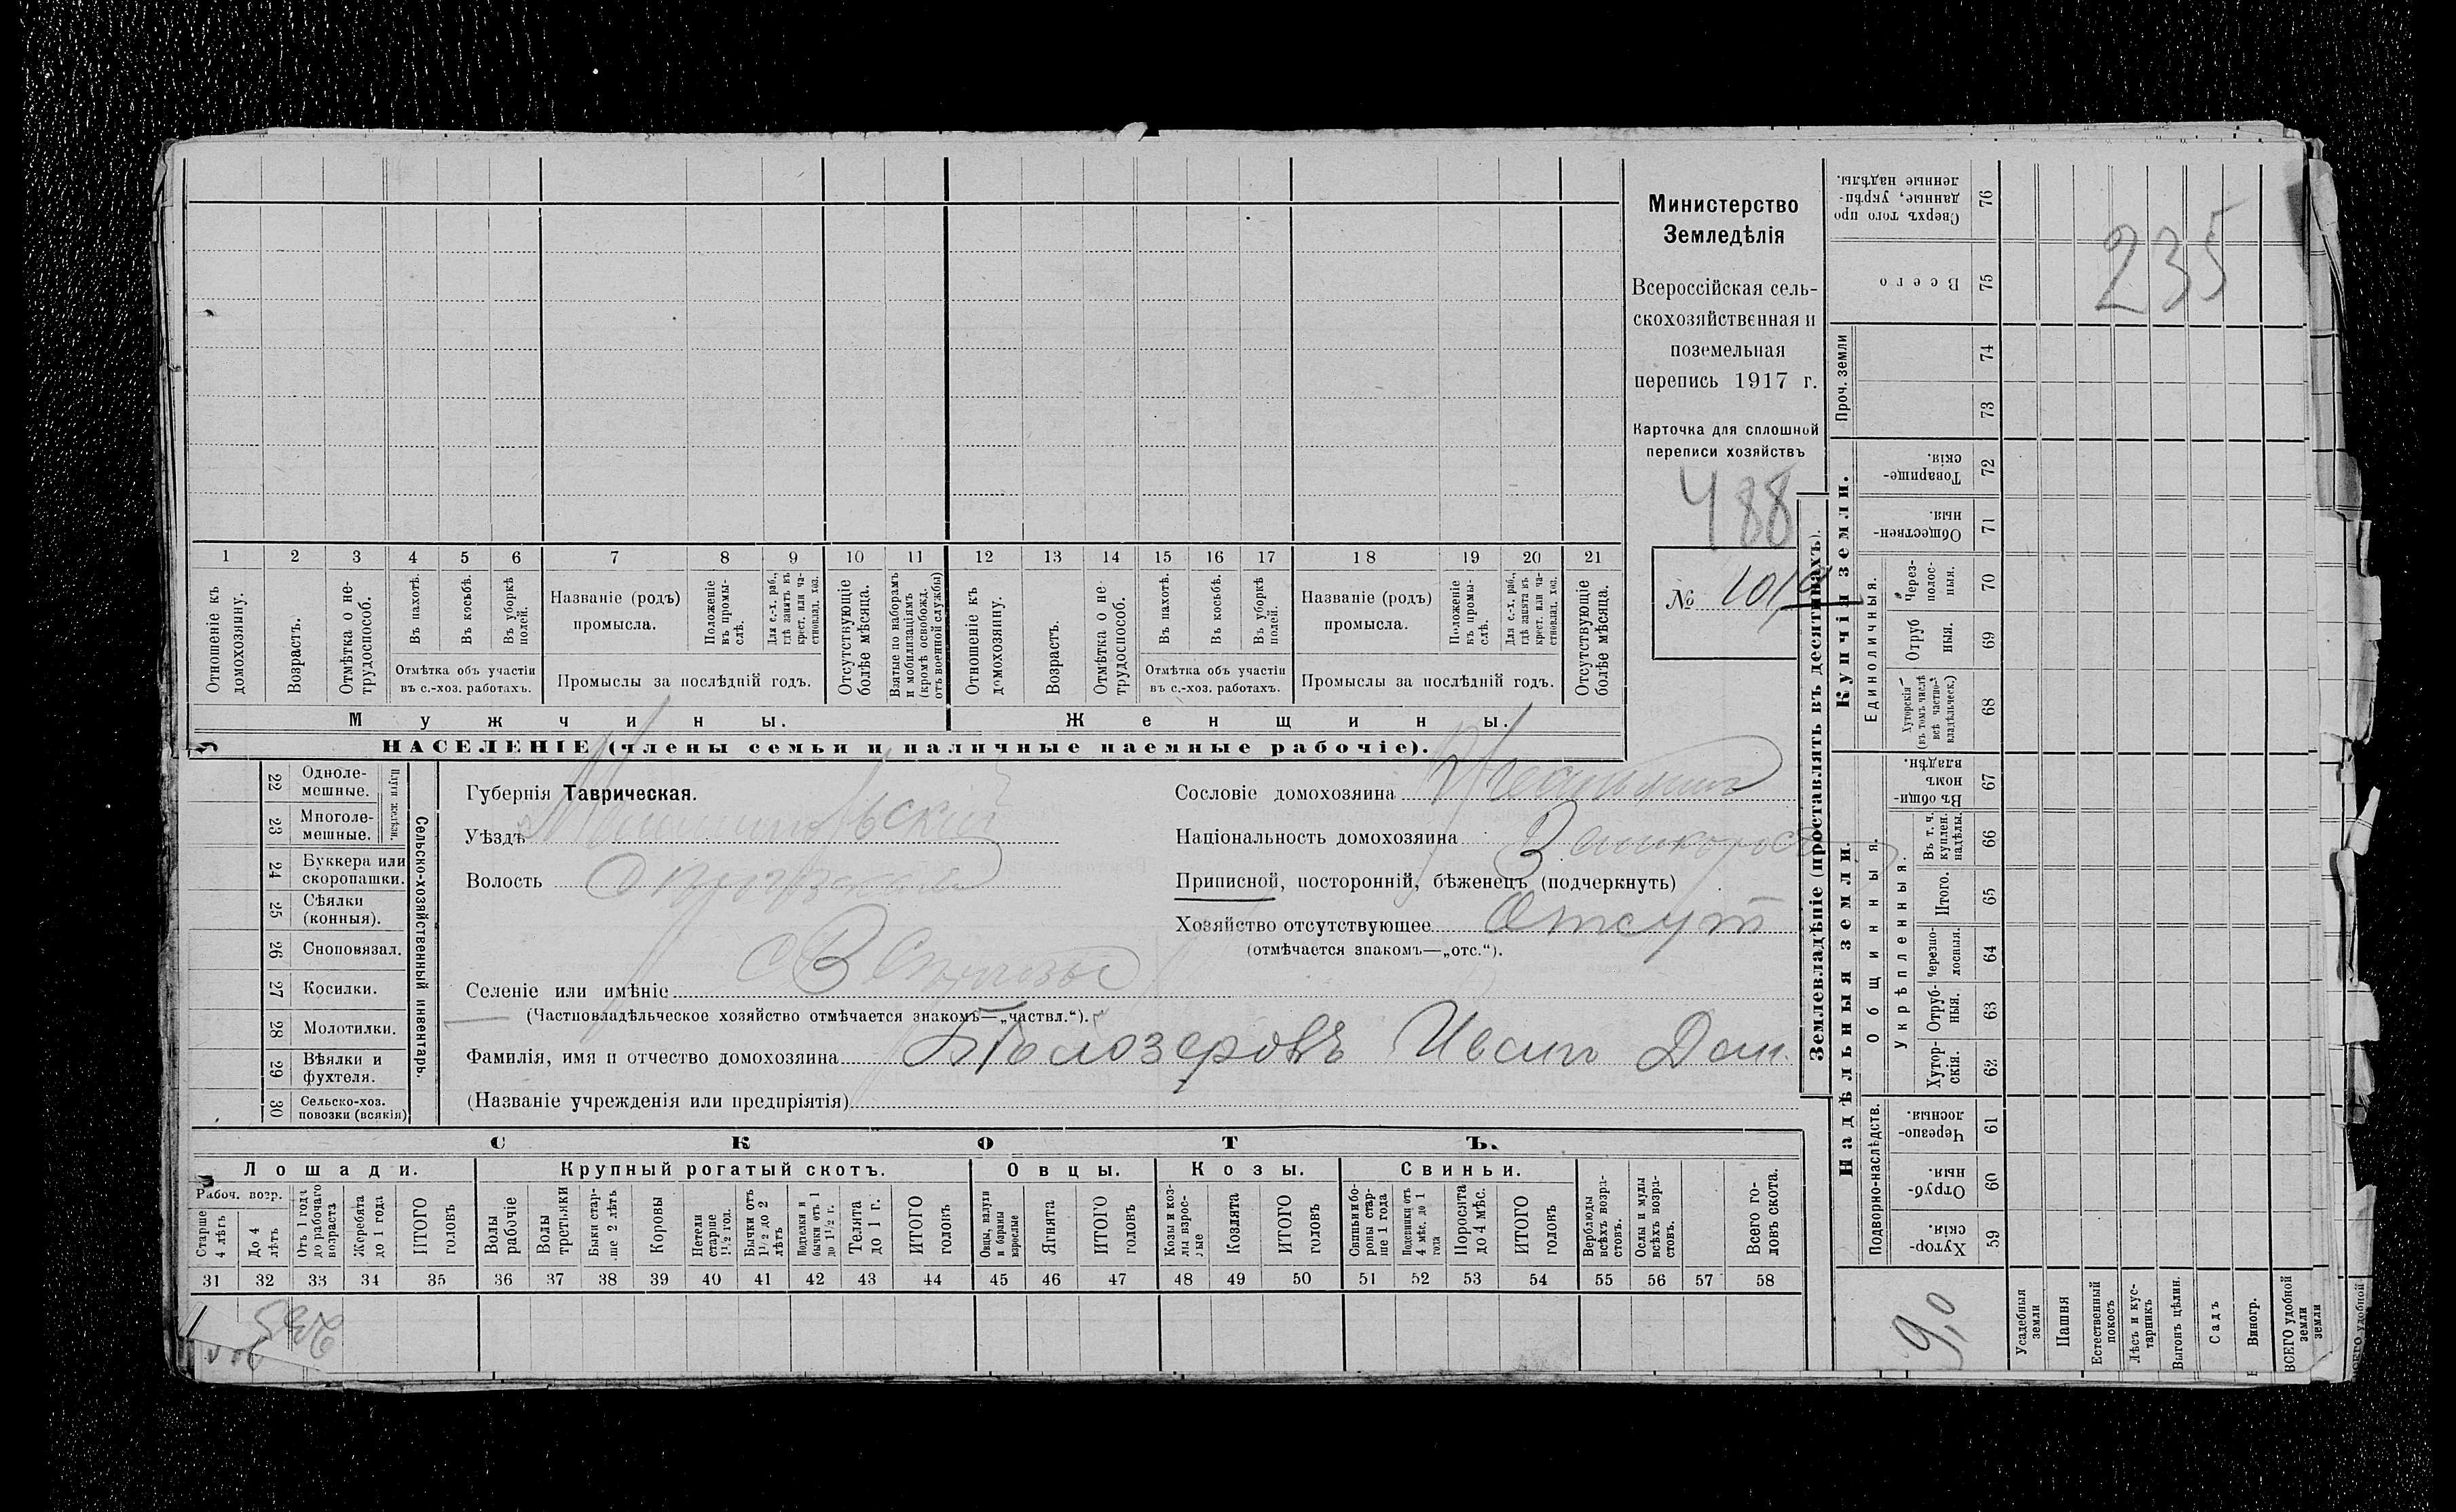 1 2 3 4 5 6 7 8 9 10 11 12 13 14 15 16 17 18 19 20 21
Отношеніе къ домохозяину.
Возрастъ.
Отмѣтка о не-
трудоспособ.
Въ пахотѣ.
Въ косьбѣ.
Въ уборкѣ
полей.
Отмѣтка объ участіи
въ с.-хоз. работахъ.
Названіе (родъ)
промысла.
Положеніе
въ промы-
слѣ.
Для с.-х. раб.,
гдѣ занятъ въ
крест. или ча-
стновлад. хоз.
Промыслы за послѣдній годъ.
Отсутствующіе
болѣе мѣсяца.
Взятые по наборамъ
и мобилизаціямъ
(кромѣ освобожд.
отъ военной службы)
Отношеніе къ
домохозяину.
Возрастъ.
Отмѣтка о не
трудоспособ.
Въ пахотѣ.
Въ косьбѣ.
Въ уборкѣ
полей.
Отмѣтка объ участіи
въ с.-хоз. работахъ.
Названіе (родъ)
промысла.
Положеніе
въ промы-
слѣ.
Для с.-х. раб.,
гдѣ занята въ
крест. или ча-
стновлад. хоз.
Промыслы за послѣдній годъ.
Отсутствующіе
болѣе мѣсяца.
Мужчины.
Женщины.
НАСЕЛЕНІЕ (члены семьи и наличные наемные рабочіе).
Министерство
Земледѣлія
Всероссійская сель-
скохозяйственная и
поземельная
перепись 1917 г.
Карточка для сплошной
переписи хозяйствъ
488
№
22 Одноле-
мешные.
23 Многоле-
мешные.
24 Буккера или
скоропашки.
25 Сѣялки
(конныя).
26 Сноповязал.
27 Косилки.
28 Молотилки.
29 Вѣялки и
фухтеля.
30 Сельско-хоз.
повозки (всякія)
Сельско-хозяйственный инвентарь.
Губернія Таврическая.
Уѣздъ
Волость
Селеніе или имѣніе
(Частновладѣльческое хозяйство отмѣчается знакомъ—„частвл.“).
Фамилія, имя и отчество домохозяина Бѣлозеровъ Иванъ Дан.
(Названіе учрежденія или предпріятія)
Сословіе домохозяина
Національность домохозяина
Приписной, посторонній, бѣженецъ (подчеркнуть)
Хозяйство отсутствующее Отсут
(отмѣчается знакомъ—„отс.“).
СКОТЪ.
Лошади.
Крупный рогатый скотъ.
Овцы.
Козы.
Свиньи.
Рабоч. возр.
Старше
4 лѣтъ
До 4
лѣтъ
Отъ 1 года
до рабочаго
возраста
Жеребята
до 1 года
ИТОГО
головъ
Волы
рабочіе
Волы
третьяки
Быки стар-
ше 2 лѣтъ
Коровы
Нетели
старше
1½ год.
Бычки отъ
1½ до 2
лѣтъ
Подтелки и
бычки отъ 1
до 1½ г.
Телята
до 1 г.
ИТОГО
головъ
Овцы, валухи
и бараны
взрослые
Ягнята
ИТОГО
головъ
Козы и коз-
лы взрос-
лые
Козлята
ИТОГО
головъ
Свиньи и бо-
ровы стар-
ше 1 года
Подсвинки отъ
4 мѣс. до 1
года
Поросята
до 4 мѣс.
ИТОГО
головъ
Верблюды
всѣхъ возра-
стовъ.
Ослы и мулы
всѣхъ возра-
стовъ.
Всего го-
ловъ скота.
31 32 33 34 35 36 37 38 39 40 41 42 43 44 45 46 47 48 49 50 51 52 53 54 55 56 57 58
235
Землевладѣніе (проставлять въ десятинахъ).
Купчія земли.
Надѣльныя земли.
Проч. земли
Единоличныя.
Общинныя.
Укрѣпленныя.
Подворно-наслѣдств.
76 Сверхъ того про
данные, укрѣп-
ленные надѣлы.
75 Всего
74
73
72 Товарище-
скія.
71 Обществен-
ныя.
70 Через-
полос-
ныя.
69 Отруб
ныя.
68 Хуторскія
(въ томъ числѣ
всѣ частно-
владѣльческ.)
67 Въ общи-
номъ
владѣн.
66 Въ т. ч.
куплен.
надѣлы.
65 Итого.
64 Черезпо-
лосныя.
63 Отруб-
ныя.
62 Хутор-
скія.
61 Черезпо-
лосныя.
60 Отруб-
ныя.
59 Хутор-
скія.
9,0
Усадебныя
земли
Пашня
Естественный
покосъ
Лѣсъ и кус-
тарникъ
Выгонъ цѣлин.
Садъ
Виногр.
ВСЕГО удобной
земли
235